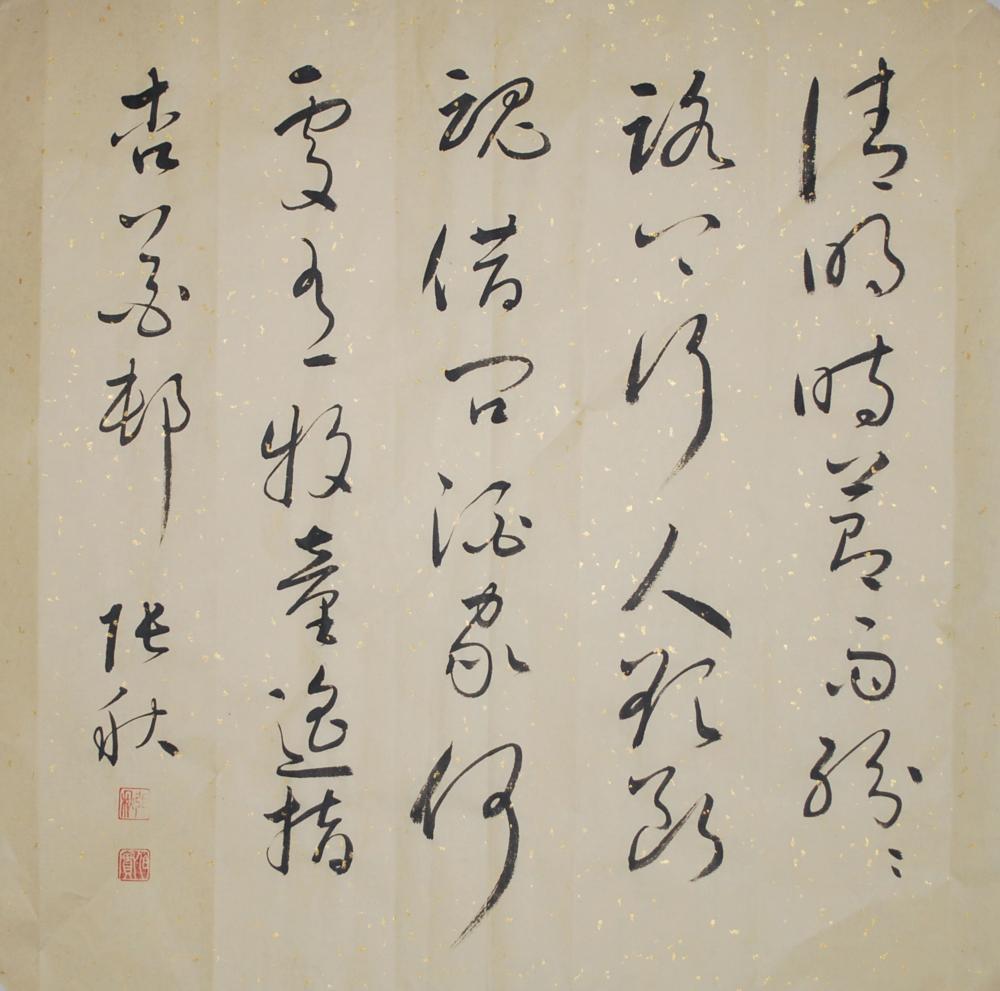 清明時節雨紛〻
路上行人欲斷
魂借問酒家何
處有牧童遙指
杏花邨 張秋